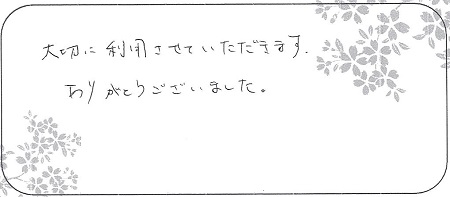 大切に利用させていただきます.
ありがとうございました。